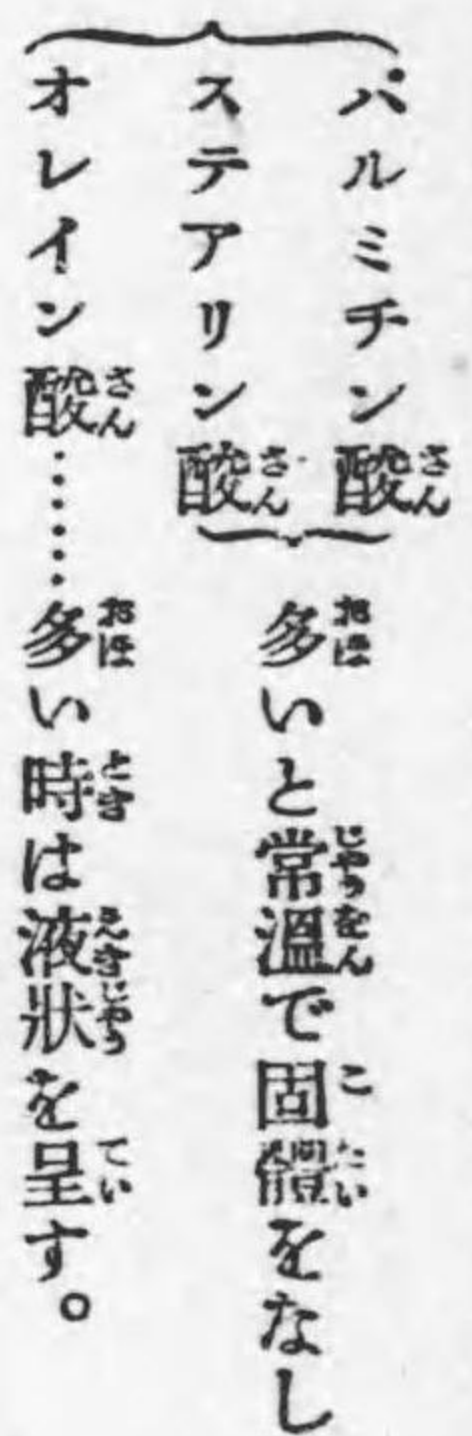 パルミチン酸
ステアリン酸
多いと常溫で固體をなし
オレイン酸……多い時は液狀を呈す。